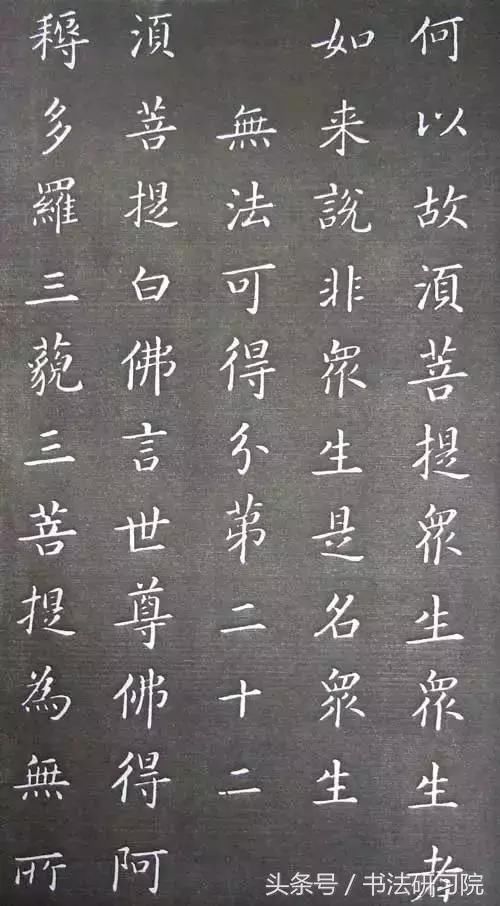 何以故須菩提眾生眾生者
如来說非眾生是名眾生
無法可得分第二十二
須菩提白佛言世尊佛得阿
耨多羅三藐三菩提為無所
头条号 / 书法研习院